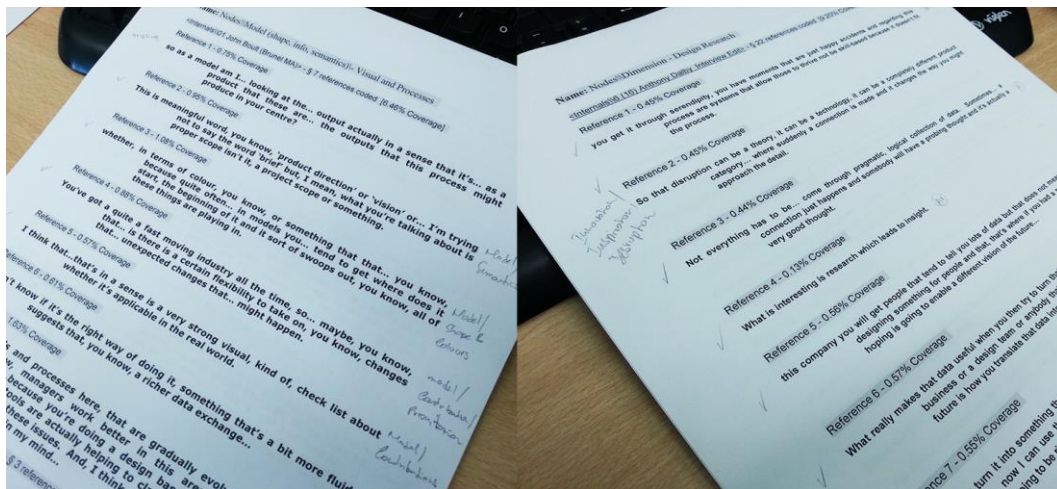 Name: Nodes\\Model (shape, info, semantics)\- Visual and Processes
<Internals\01 John Boult (Brunel MA)> - § 7 references coded [6.46% Coverage]
Reference 1 - 0.75% Coverage
so as a model am I... looking at the... output actually in a sense that it's... as a
product that these are... the outputs that this process might
produce in your centre?
Reference 2 - 0.95% Coverage
This is meaningful word, you know, 'product direction' or 'vision' or... I'm trying
not to say the word 'brief' but, I mean, what you're talking about is
proper scope isn't it, a project scope or something.
Reference 3 - 1.08% Coverage
whether, in terms or colour, you know, or something that that... you know,
because quite often... in models you... tend to get where does it
start the beginning of it and it sort or swoops out, you know, all of
these things are playing in.
Reference 4 - 0.88% Coverage
You've got a quite a fast moving industry all the time, so... maybe, you know,
that... is there is a certain flexibility to take on, you know, changes
that... unexpected changes that... might happen.
Reference 5 - 0.57% Coverage
I think that...that's in a sense is a very strong visual, kind of, check list about
whether it's applicable in the real world.
Reference 6 - 0.61% Coverage
know if it's the right way of doing it, something that's a bit more fluid
suggests that, you know, a richer data exchange...
1.63% Coverage
s and processes here, that are gradually evol
managers work better in this are
because you're doing a design bas
tools are actually helping to cl
these issues. And, I think
n my mind...
§ 3 reference
Model/
Semantics
Model/
Shape &
Colours
model/
Contribution/
Model/
Contributions
Name: Nodes\\Dimension - Design Research
<Internals\06 (16) Anthony Dalby, Interview Edit> - § 22 references coded [9.20% Coverage]
Reference 1 - 0.45% Coverage
you get it through serendipity, you have moments that are just happy accidents and regarding this
process are systems that allow those to thrive not be skill-based because it doesn't fit
the process.
Reference 2 - 0.45% Coverage
So that disruption can be a theory, it can be a technology, it can be a completely different product
category... where suddenly a connection is made and it changes the way you might
approach the detail.
Reference 3 - 0.44% Coverage
Not everything has to be... come through pragmatic, logical collection of data. Sometimes... a
connection just happens and somebody will have a probing thought and it's actually a
very good thought.
Reference 4 - 0.13% Coverage
What is interesting is research which leads to insight.
Reference 5 - 0.56% Coverage
this company you will get people that tend to tell you lots of data but that does not mean
designing something for people and that, that's where if you had a
hoping is going to enable a different vision of the future...
Reference 6 - 0.57% Coverage
What really makes that data useful when you then try to turn th
business or a design team or anybody th
future is how you translate that data in
Reference 7 - 0.55% Coverage
turn it into something
now I can use th
Inspiration/
disruption